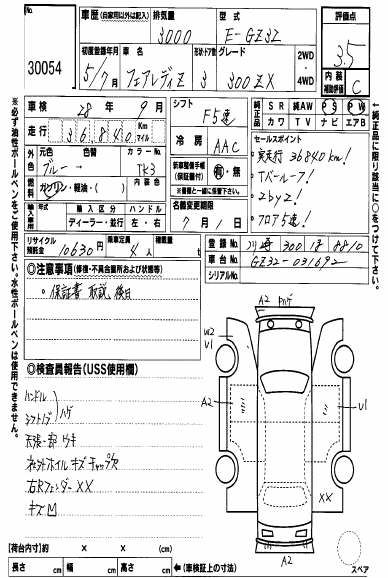 No.
30054
車歴 (自家用以外は記入)
排気量
型式
評価点
3000
E-GZ32
3.5
初度登録年月
車名
形状・ドア数
グレード
2WD
・
4WD
5/7月
フェアレディZ
3
300ZX
内装
補助評価
C
車検
28年 9月
シフト
F5速
純正品
SR 純AW PS PW
カワ TV ナビ エアB
走行
36840
Km
マイル
冷房
AAC
セールスポイント
・実走行 36840km!
・Tバールーフ!
・2by2!
・フロア5速!
外色
元色
色替
カラーNo.
ブルー→
TK3
燃料
ガソリン・軽油・( )
内装色
新車整備手帳
(保証書付)
有・無
※書類と一緒に後送して下さい。
輸入車用
輸入区分
ハンドル
ディーラー・並行
左・右
名義変更期限
7月1日
リサイクル
預託金
10630円
乗車定員
4人
積載量
t
登録No.
川崎 300 ほ 8810
車台No.
GZ32-031692
シリアルNo.
◎注意事項 (修復・不具合箇所および状態等)
・保証書 取説 後日
◎検査員報告(USS使用欄)
ハンドル
シフトノブ
ハゲ
天張一部ウキ
右Rフェンダー XX
キズ
A2
W2
U1
A2
U1
XX
A2
スペア
[荷台内寸]約 × × (cm)
長さ cm 幅 cm 高さ cm
←(車検証上の寸法)
※必ず油性ボールペンをご使用下さい。水性ボールペンは使用できません。
純正品に限り該当に○をつけて下さい。